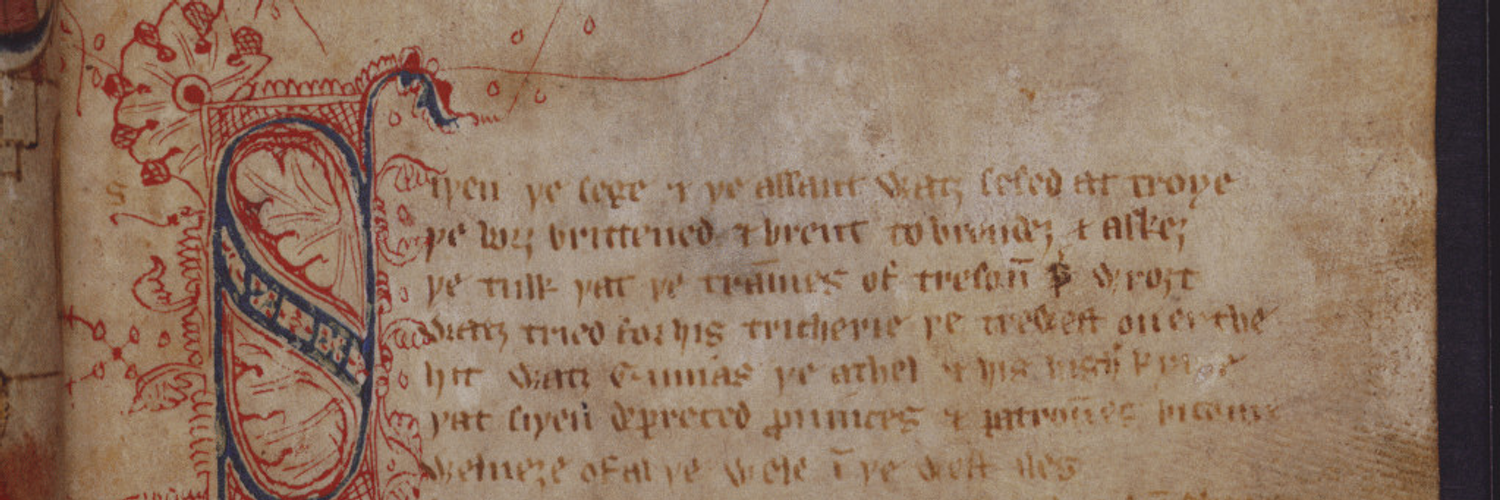 Siþen þe sege & þe assaut watz sesed at troye
þe borȝ brittened & brent to brondeȝ & askez
þe tulk þat þe trammes of tresoun þer wroȝt
watz tried for his tricherie þe trewest on erthe
hit watz Ennias þe athel & his highe kynde
þat siþen depreced prouinces & patrounes bicome
welneȝe of al þe wele in þe west iles